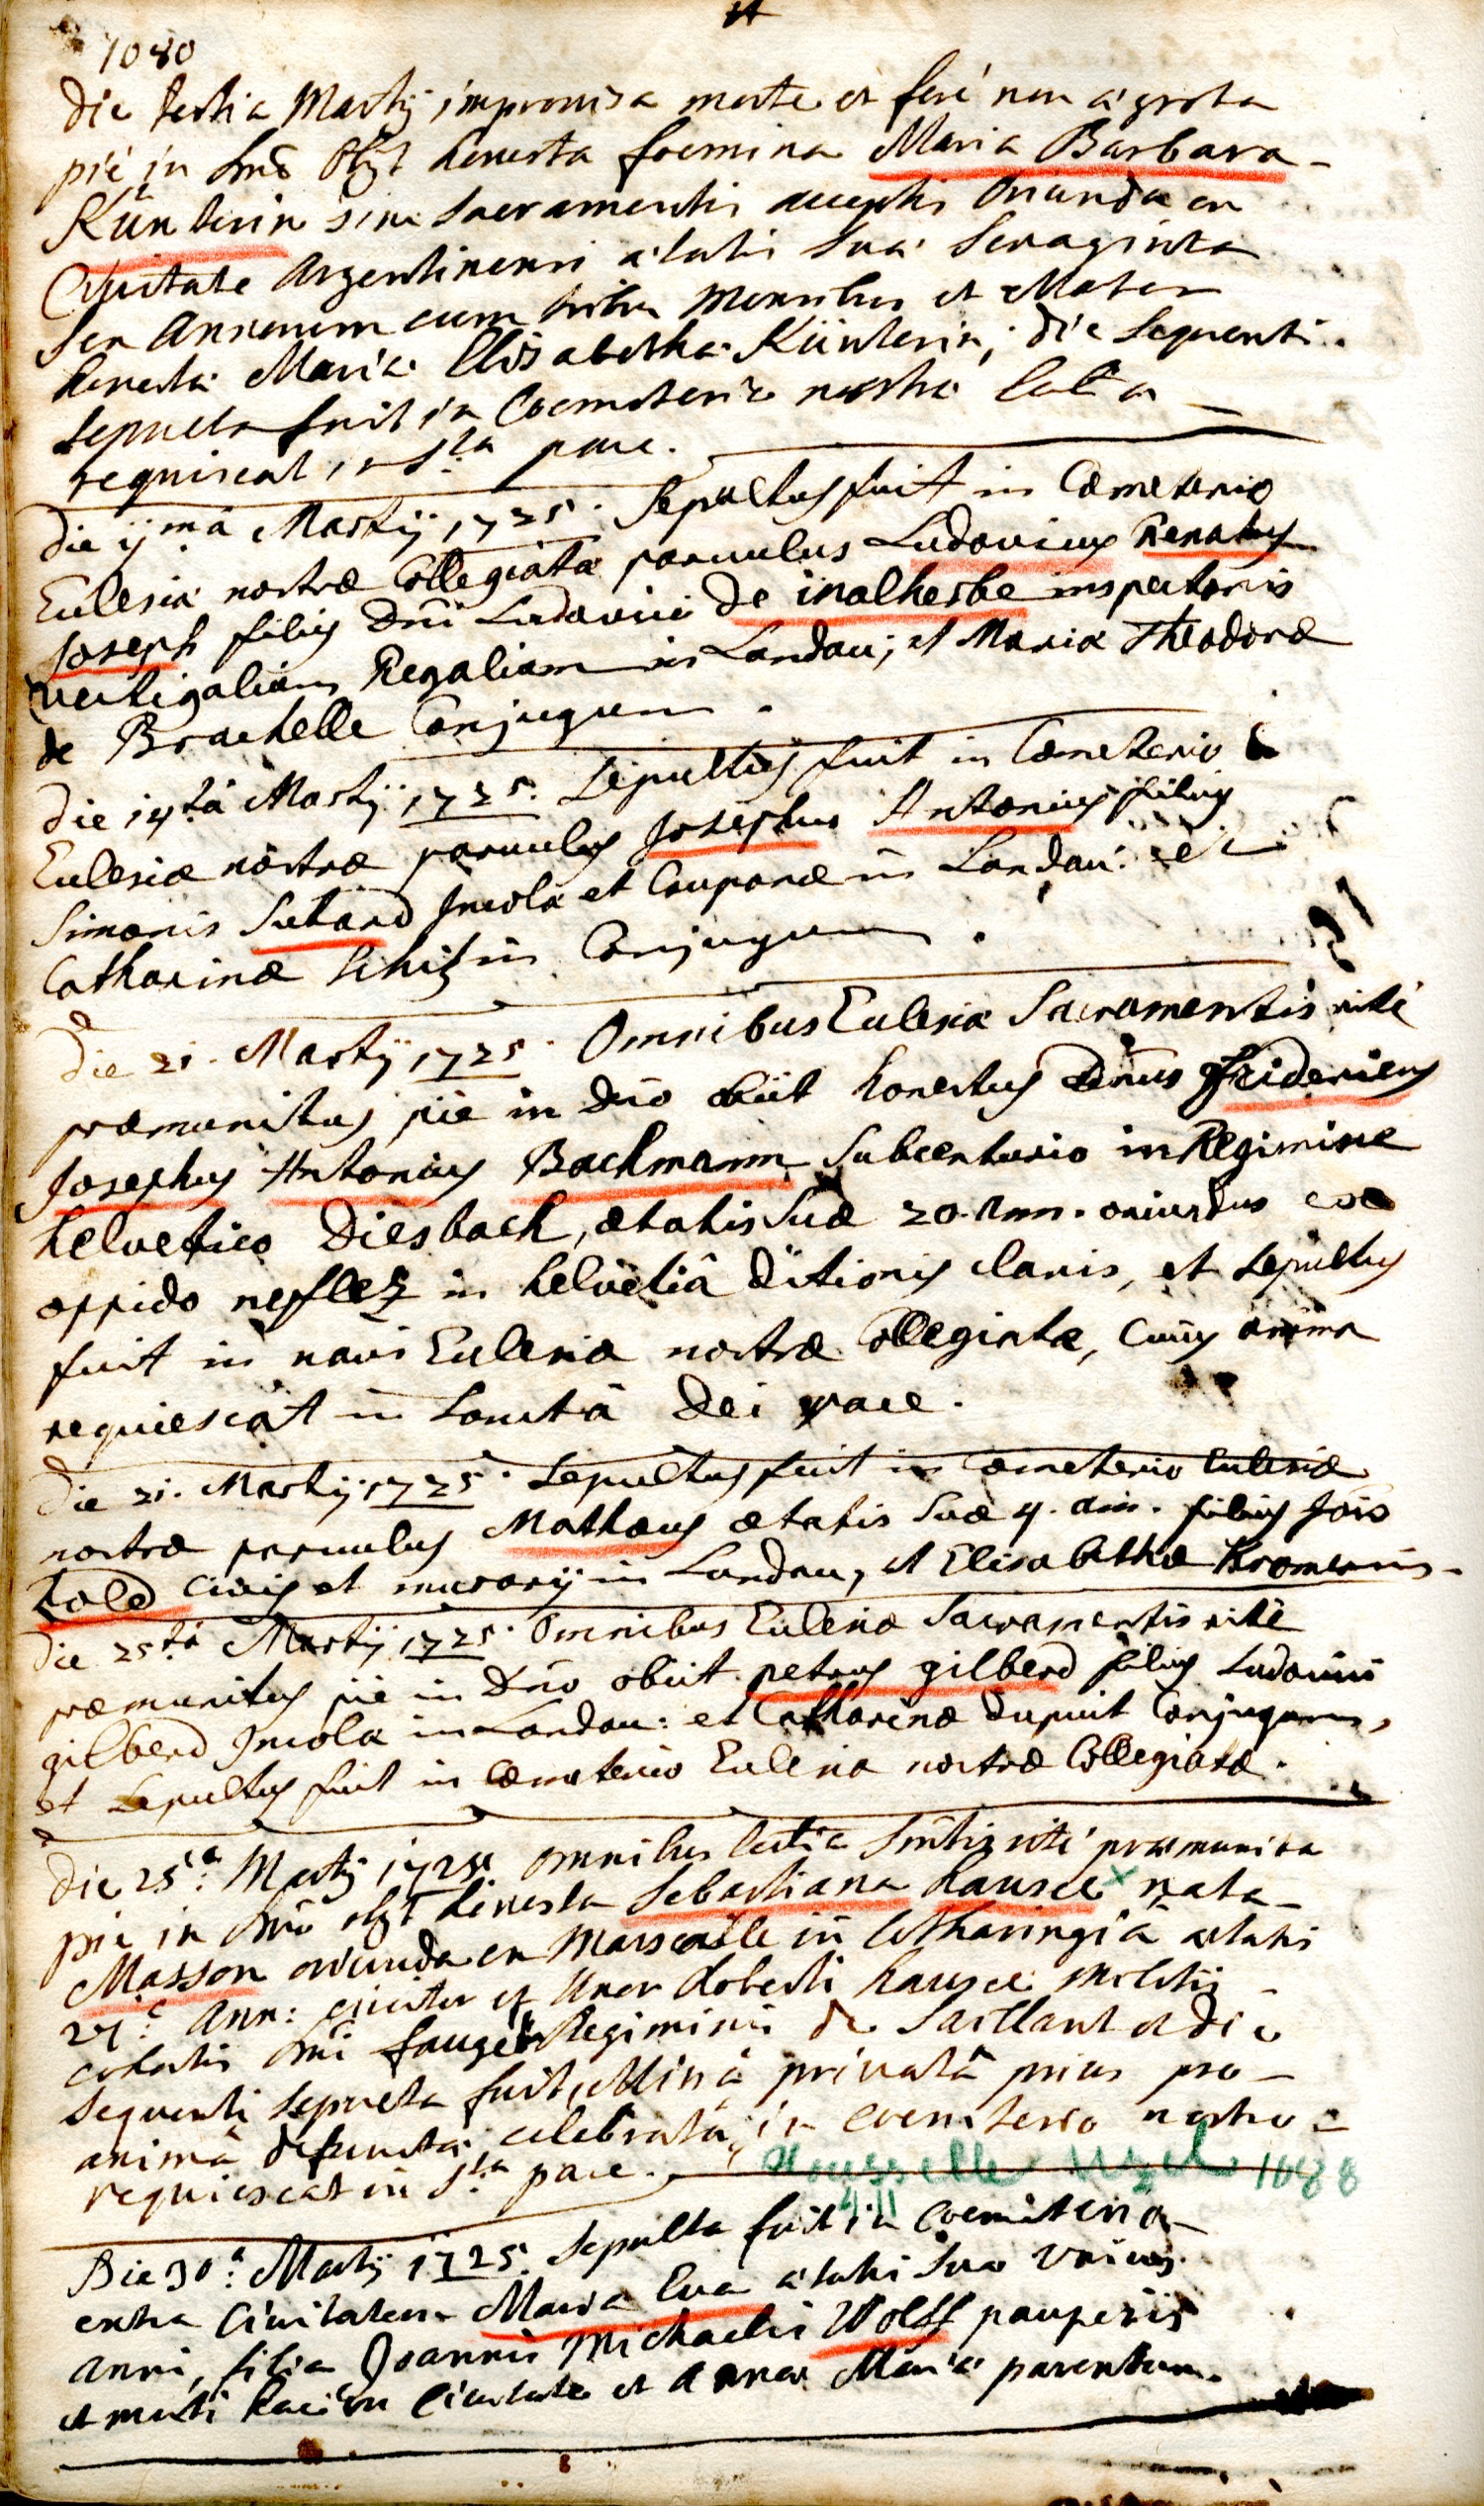 1080
Die tertia Martij improvisa morte et ferè non aegrota
pié in Dno Obyt honesta foemina Maria Barbara
Künterin sine Sacramentis acceptis Oriunda ex
Civitate Argentinensi aetatis suae Sexaginta
sex Annorum cum tribus Mensibus et Mater
honesta Maria Elisabetha Künterin, die sequenti
sepulta fuit in Coemeterio nostro
requiescat in Sta pace.
Die 11ma Martij 1725. Sepultus fuit in Coemeterio
Ecclesiae nostrae Collegiatae parvulus Ludovicus Renatus
Joseph filius Dni Ludovici de inalherbe inspectoris
vectigalium Regalium in Landau, et Maria Theodorae
de Brachelle Conjugum.
Die 14ta Martij 1725. Sepultus fuit in Coemeterio
Ecclesiae nostrae parvulus Josephus Antonius filius
Simonis Sutard Incolae et Cauponae in Landau et
Catharinae Schitzin Conjugum.
Die 21. Martij 1725. Omnibus Ecclesiae Sacramentis rité
praemunitus pie in Dno obiit honestus Dnus Fridericus
Josephus Antonius Bachmann Subcenturio in Regimine
helvetico Diesbach, aetatis suae 20. Ann. oriundus ex
oppido neflez in helvetiâ ditionis claris, et sepultus
fuit in navi Ecclesiae nostrae Collegiatae, cuius anima
requiescat in Sanctâ Dei pace.
Die 21. Martij 1725. Sepultus fuit in Coemeterio Ecclesiae
nostrae parvulus Mathaeus aetatis suae 4. ann. filius Jois
hold civis et murarij in Landau, et Elisabethae Kromerin
Die 25ta Martij 1725. Omnibus Ecclesiae Sacramentis rité
praemunitus pie in Dno obiit petrus gilberd filius Ludovici
gilberd Incolae in Landau: et Catharinae dupuit Conjugum,
et Sepultus fuit in Coemeterio Ecclesiae nostrae Collegiatae.
Die 25a: Martij 1725 omnibus Smtis rité praemunita
pié in Dno obyt honesta Sebastiana hausce x nata
Masson oriunda ex Marseaille in lotharingiâ aetatis
27: Ann: circiter et Uxor Roberti hausce Militis
cohortis Dni fauge Regiminis de Saillant et die
sequenti sepulta fuit, Missâ privatâ prius pro
animâ defunctae celebratâ, in coemiterio nostro
requiescat in Sta pace. Housselle Uzel 1688
4.11
Die 30a: Martij 1725. Sepulta fuit in Coemiterio
extra Civitatem Maria Eva aetatis suae Unius
anni, filia Joannis Michaelis Wolff pauperis
et muti hac in Civitate et Annae Mariae parentum.